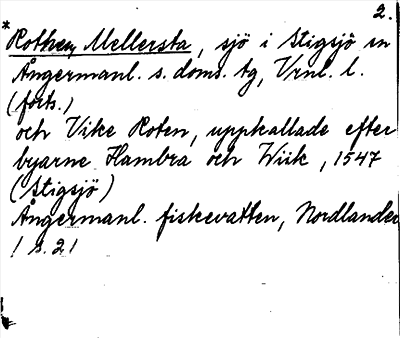 2.
* Rothen, Mellersta, sjö i Stigsjö sn
Ångermanl. s. doms. tg, Vrnl. l.
(forts.)
och Vike Roten, uppkallade efter
byarne Hambra och Wiik, 1547
(Stigsjö)
Ångermanl. fiskevatten, Nordlander
/ s. 21